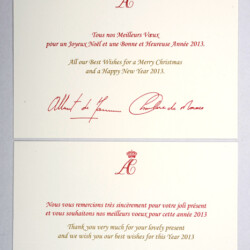 AC
Tous nos Meilleurs Vœux
pour un Joyeux Noël et une Bonne et Heureuse Année 2013.
All our Best Wishes for a Merry Christmas
and a Happy New Year 2013.
Albert de Monaco Charlène de Monaco
AC
Nous vous remercions très sincèrement pour votre joli présent
et vous souhaitons nos meilleurs voeux pour cette année 2013
Thank you very much for your lovely present
and we wish you our best wishes for this Year 2013